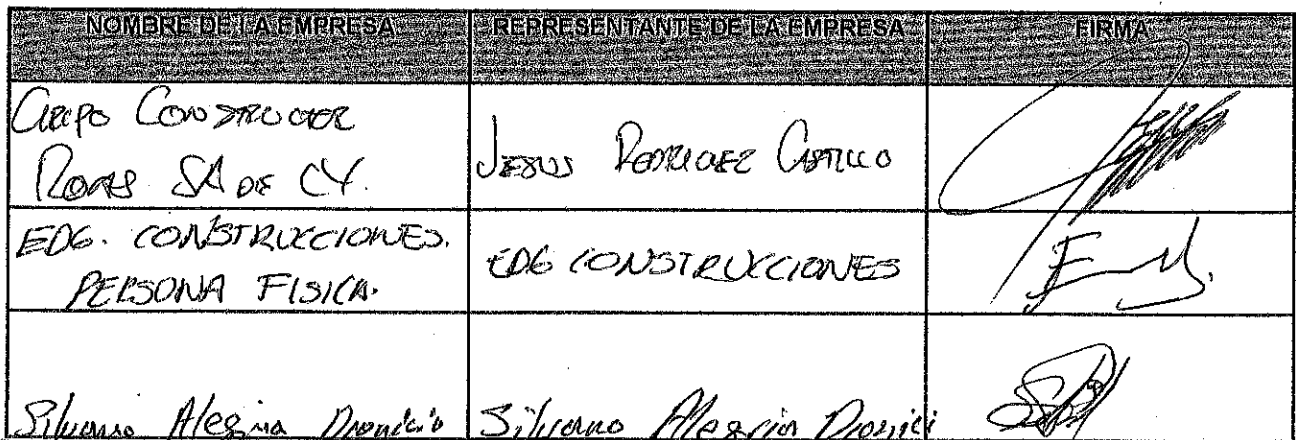 NOMBRE DE LA EMPRESA
REPRESENTANTE DE LA EMPRESA
FIRMA
GRUPO CONSTRUCTOR
SA DE CV.
JESUS RODRIGUEZ CASTILLO
EDG. CONSTRUCCIONES.
PERSONA FISICA.
EDG CONSTRUCCIONES
Silvano Alegria Dionicio
Silvano Alegria Dionici